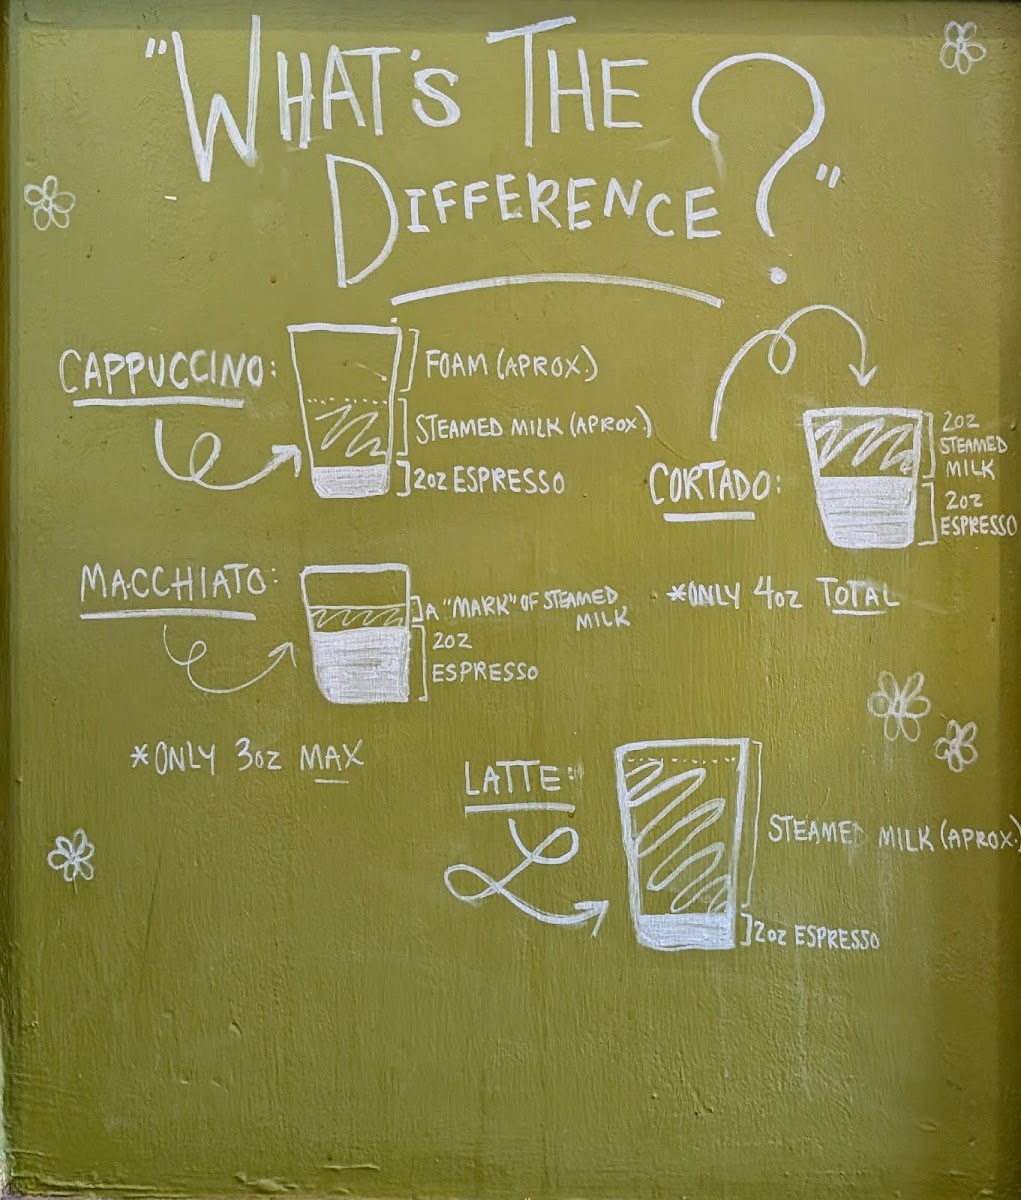 "WHAT'S THE
DIFFERENCE?"
CAPPUCCINO:
FOAM (APROX.)
STEAMED MILK (APROX.)
2oz ESPRESSO
CORTADO:
2oz
STEAMED
MILK
2oz
ESPRESSO
*ONLY 4oz TOTAL
MACCHIATO:
A "MARK" OF STEAMED
MILK
2oz
ESPRESSO
*ONLY 3oz MAX
LATTE:
STEAMED MILK (APROX.)
2oz ESPRESSO